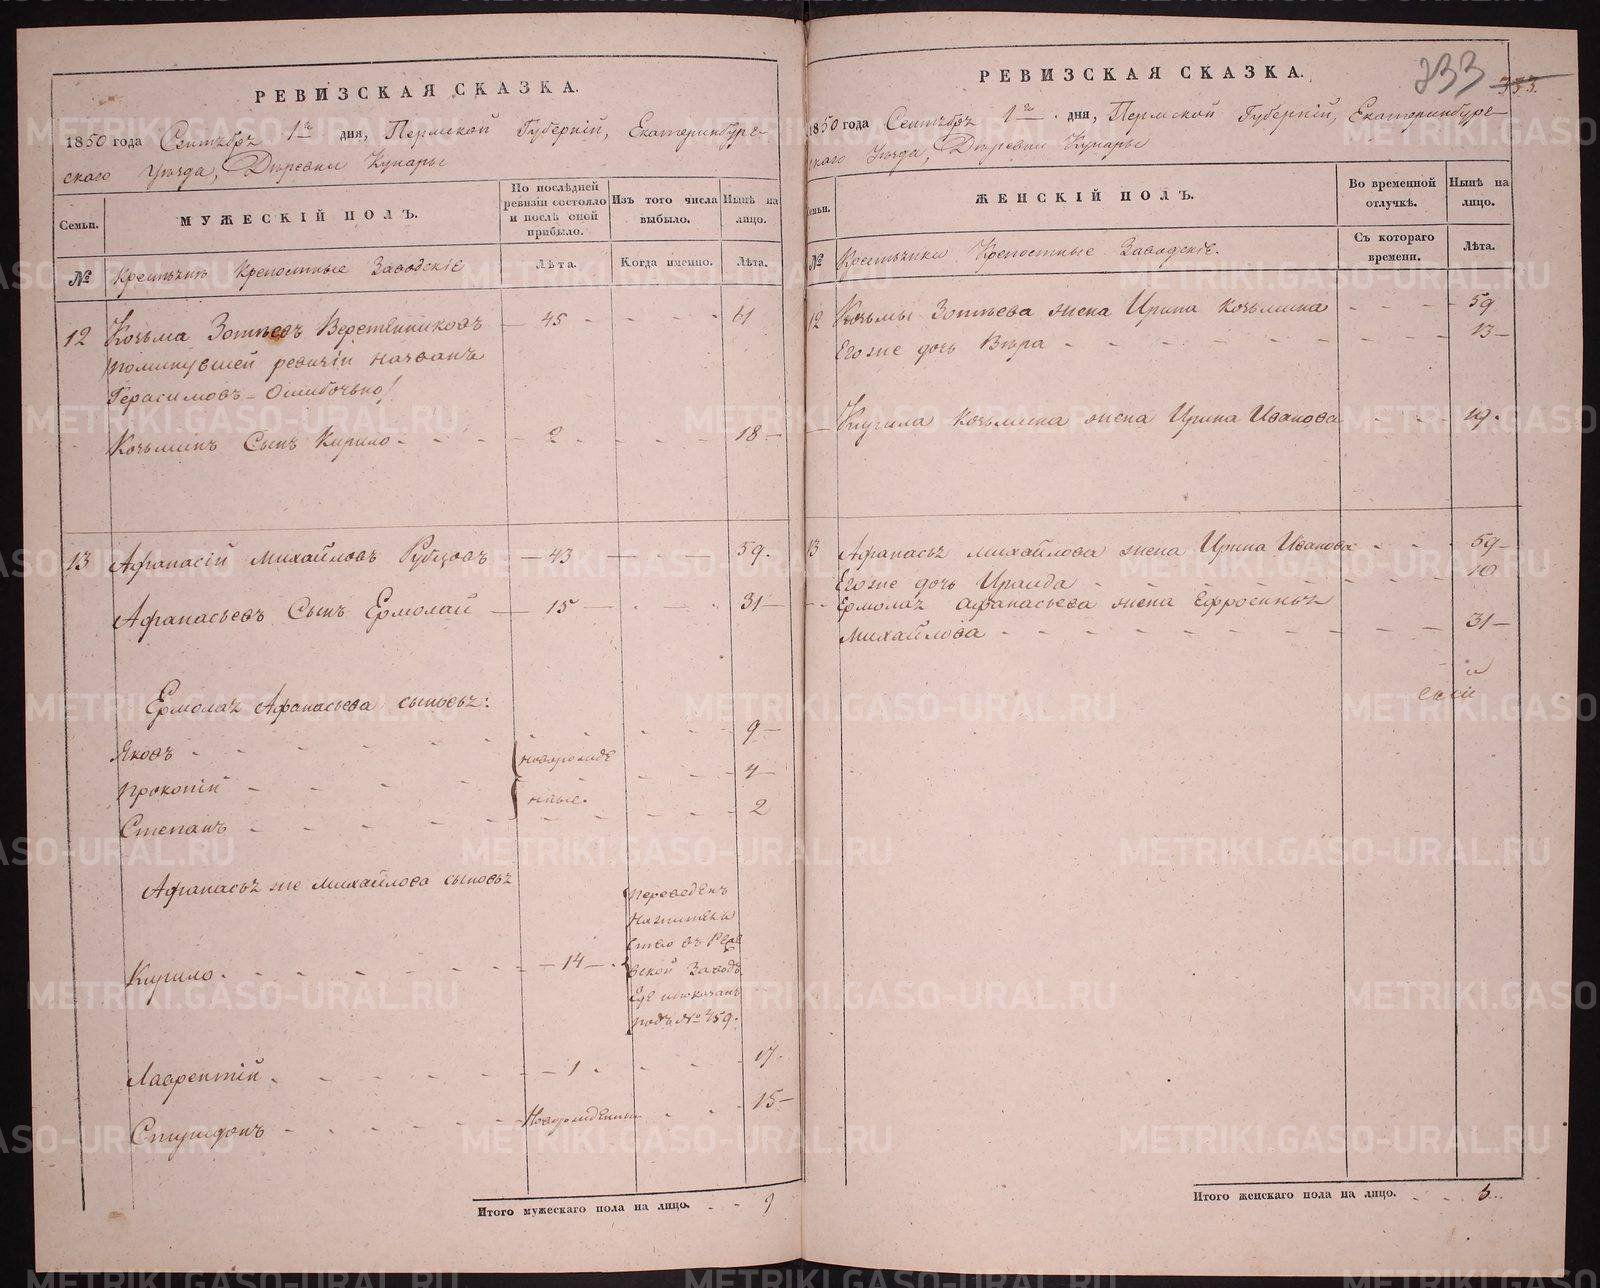 РЕВИЗСКАЯ СКАЗКА.
1850 года Сентября 1го дня, Пермской Губерніи, Екатеринбург-
скаго Уѣзда, Деревни Кунары
Семьи.
МУЖЕСКІЙ ПОЛЪ.
По послѣдней ревизіи состояло и послѣ оной прибыло.
Изъ того числа выбыло.
Нынѣ на лицо.
№
Крестьянъ Крепостные Заводскіе
Лѣта.
Когда именно.
Лѣта.
12 Козьма Зотѣевъ Веретенниковъ — 45 - - - - 61
поминувшей ревизіи названъ
Герасимовъ - Ошибочьно/
Козьминъ Сынъ Кирило - - - 2 - - - - 18 -
13 Афанасій Михайловъ Рубцовъ — 43 — - - - 59.
Афанасьевъ Сынъ Ермолай — 15 — - - - 31 —
Ермолая Афанасьева сыновья:
Яковъ - - - - - - - - 9 —
Прокопій - - - новорожде - - - 4 —
нные.
Степанъ - - - - - - - - 2
Афанасья же Михайлова сыновья
Переведенъ
Кирило - - - - - - 14 —
вской Заводъ
гдѣ и показанъ
подъ № 459.
Лаврентій - - - - - 1 - - - - 17.
Спиридонъ - - - - Новорожденный - - - 15 —
Итого мужескаго пола на лицо. - - 9
РЕВИЗСКАЯ СКАЗКА.
333
333.
1850 года Сентября 1го дня, Пермской Губерніи, Екатеринбург-
скаго Уѣзда, Деревни Кунары
Семьи.
ЖЕНСКІЙ ПОЛЪ.
Во временной отлучкѣ.
Нынѣ на лицо.
№
Крестьянки Крепостные Заводскіе.
Съ котораго времени.
Лѣта.
12 Козьмы Зотѣева жена Ирина Козьмина - - - - 59
Егоже дочь Вѣра - - - - - - - - 13 —
Кирила Козьмина жена Ирина Иванова - - - 19.
13 Афанасья Михайлова жена Ирина Иванова - - - 59 —
Егоже дочь Ираида - - - - - - - - 10
Ермолая Афанасьева жена Ефросинья
Михайлова - - - - - - - - 31 —
Итого женскаго пола на лицо. - - - 6
METRIKI.GASO-URAL.RU